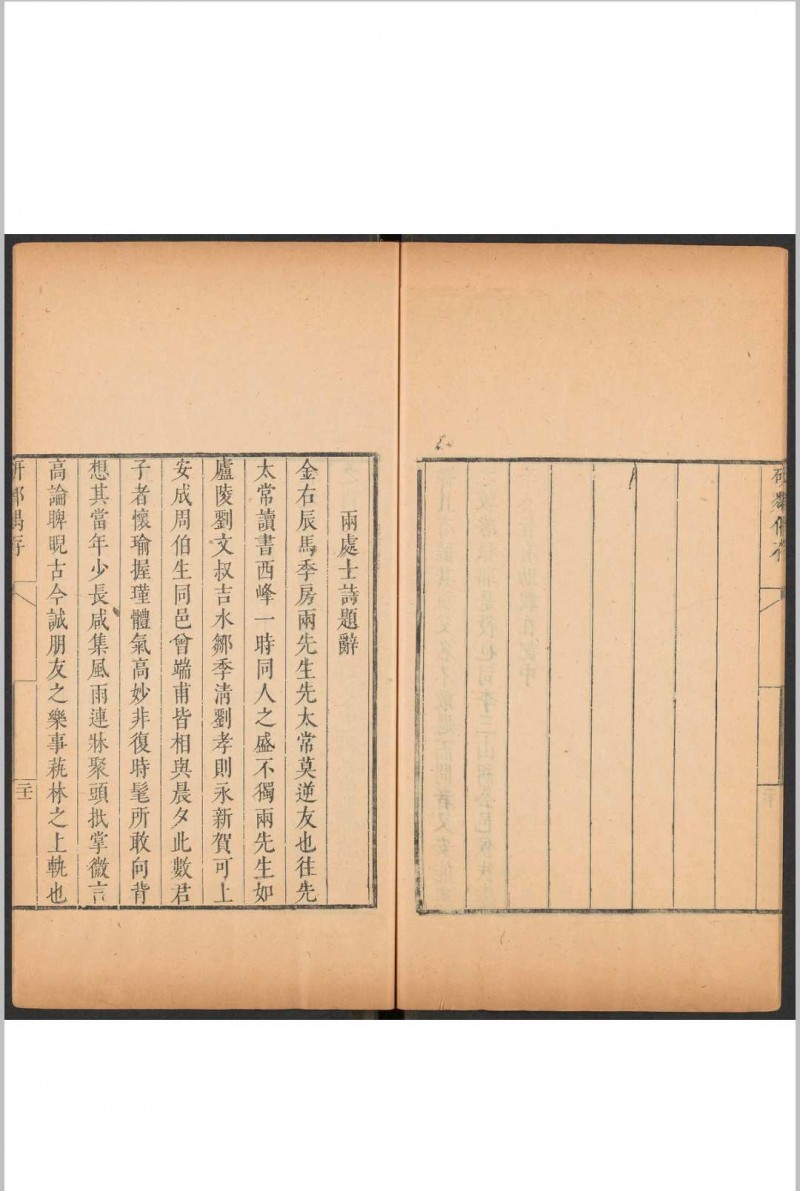 兩處士詩題辭
金右辰馬季房兩先生先太常莫逆友也往先
太常讀書西峰一時同人之盛不獨兩先生如
廬陵劉文叔吉水鄒季清劉孝則永新賀可上
安成周伯生同邑曾端甫皆相與晨夕此數君
子者懷瑜握瑾體氣高妙非復時髦所敢向背
想其當年少長咸集風雨連牀聚頭抵掌微言
高論睥睨古今誠朋友之樂事萟林之上軌也
二十一